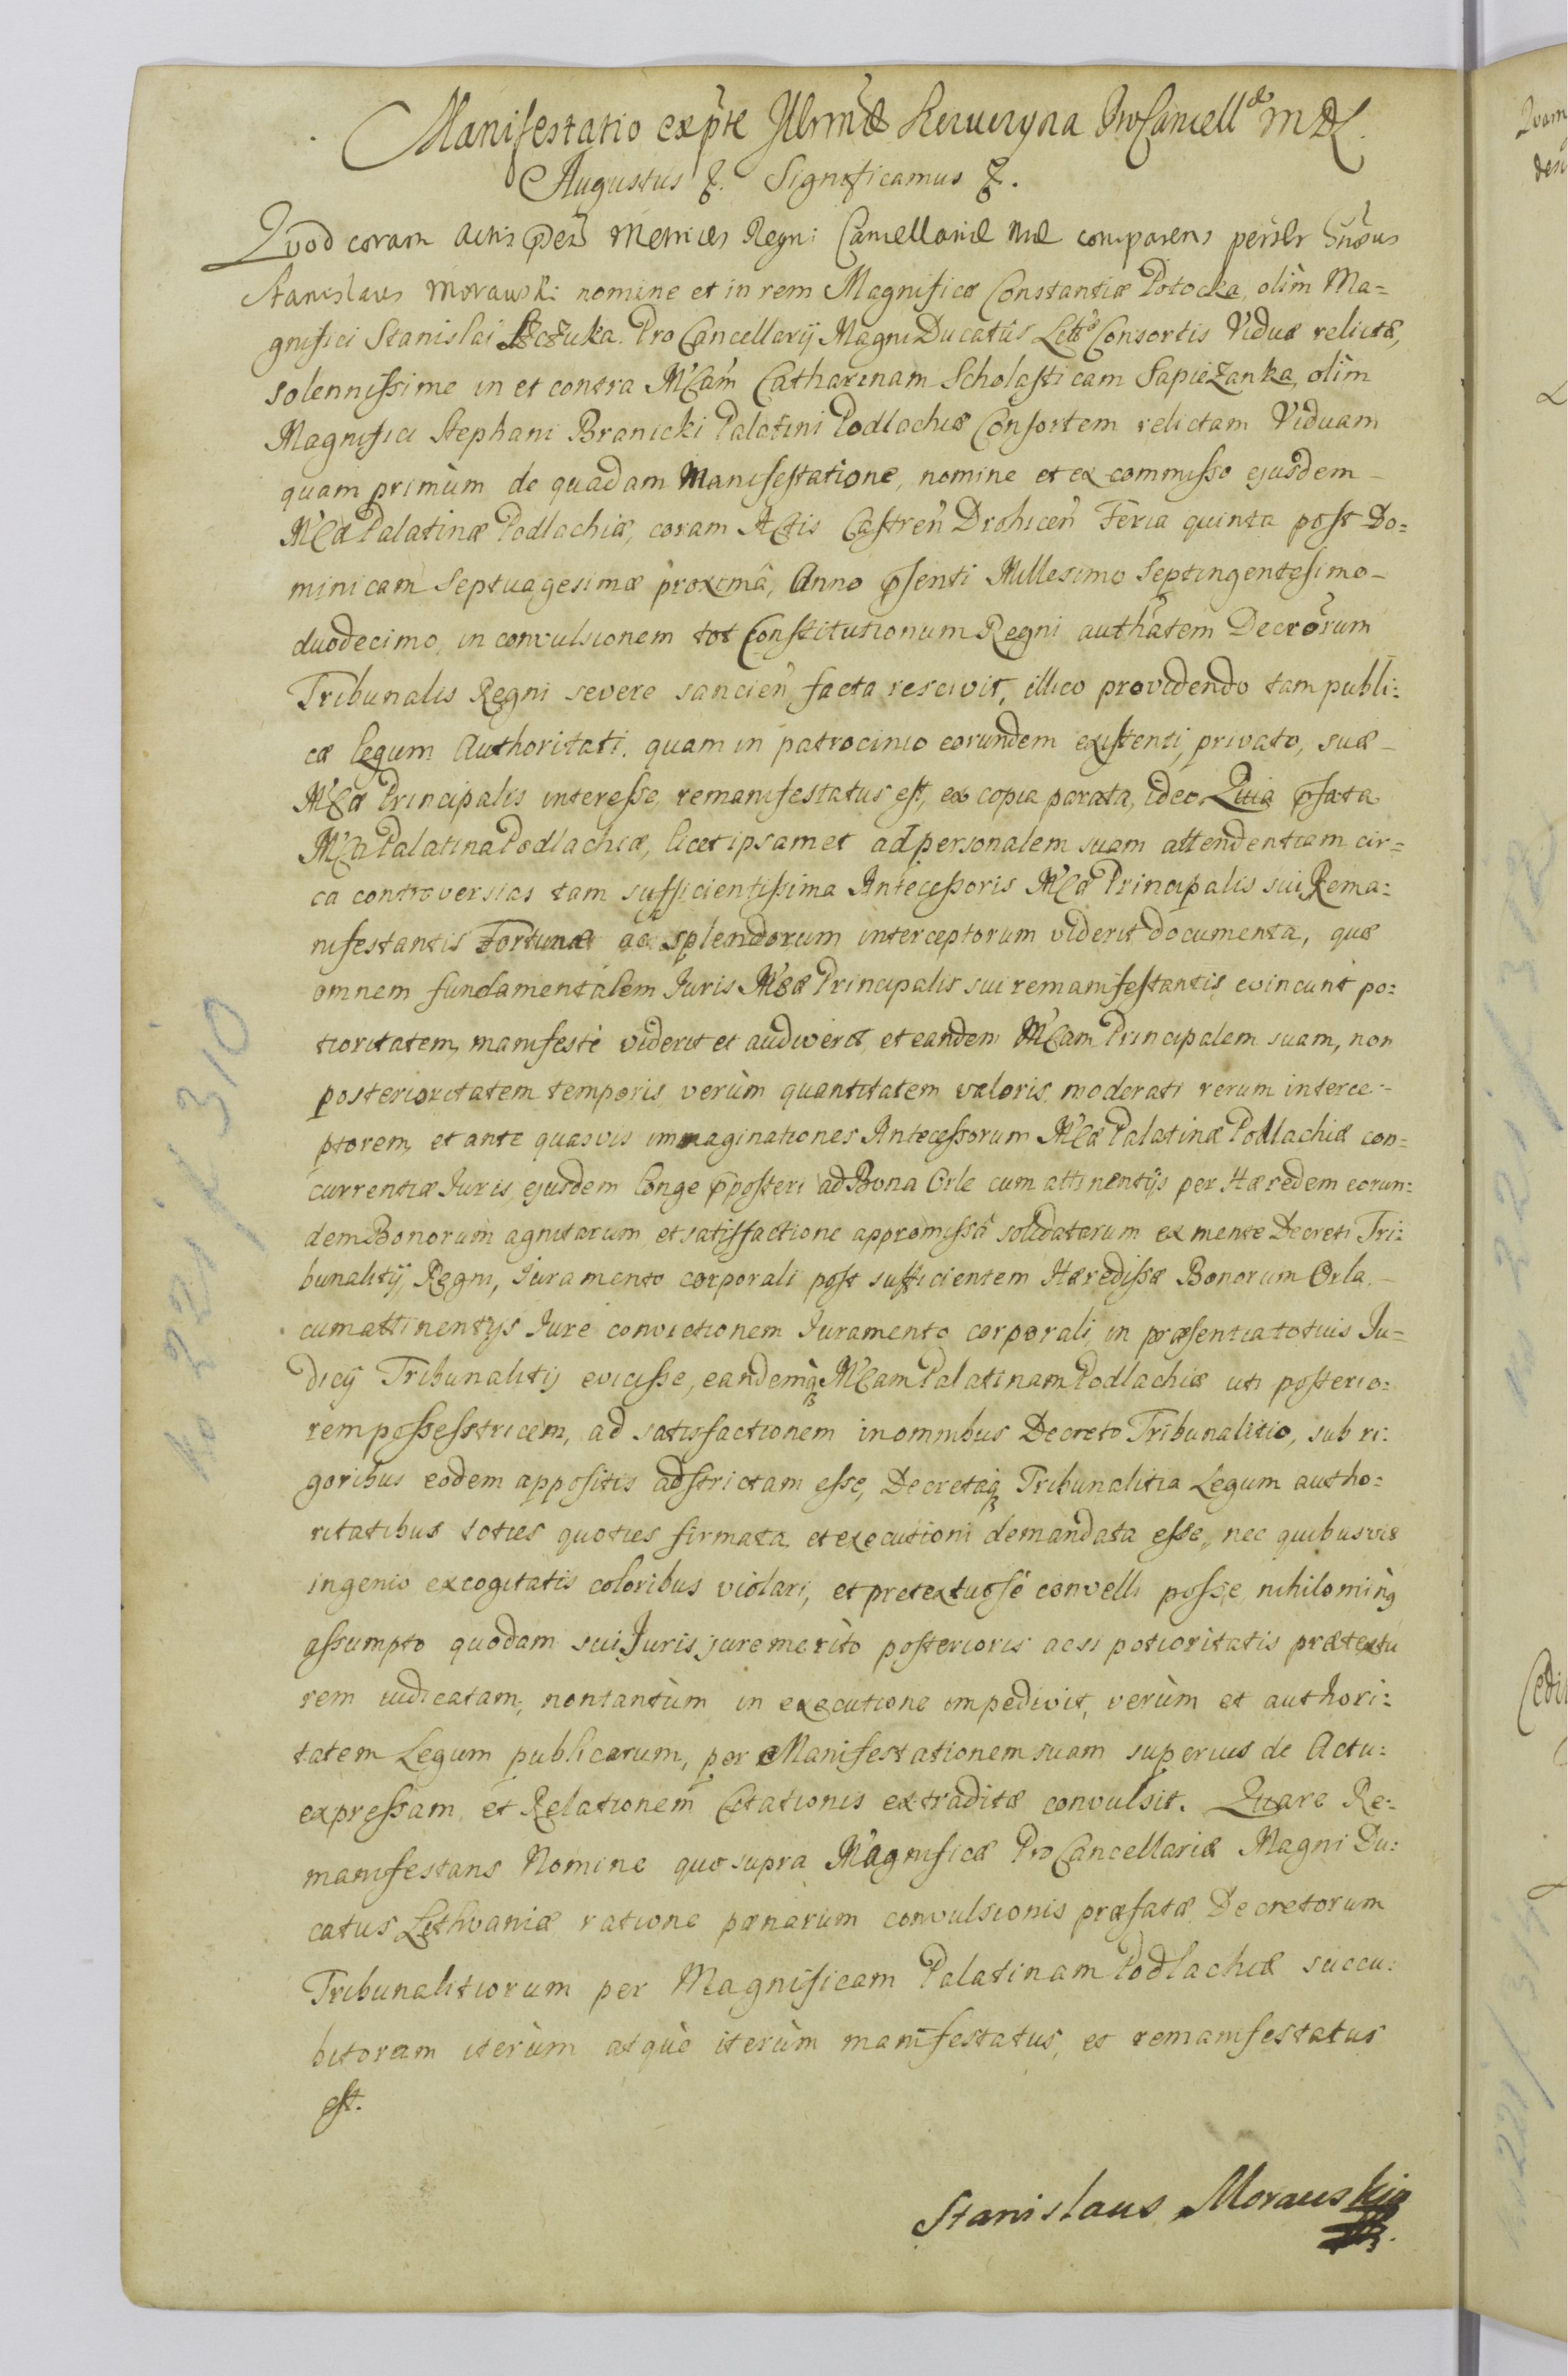 Manifestatio ex pte Illrmæ Procancell MDL.
Augustus &. Significamus &.
Quod coram Actis Metrices Regni Cancellariæ Mae comparens
Stanislaus Morawski nomine et in rem Magnificæ Constantiæ Potocka, olim Ma=
gnifici Stanislai Szczuka Pro Cancellarij Magni Ducatûs Consortis Viduæ relictæ,
solennissime in et contra M'Cam Catharinam Scholasticam Sapiezanka, olim
Magnifici Stephani Branicki Palatini Podlachiæ Consortem relictam Viduam
quam primùm de quadam Manifestatione, nomine et ex commisso ejusdem -
M'Cæ Palatinæ Podlachiæ, coram Actis Castren Drohicen Feria quinta post Do=
minicam Septuagesimæ proximâ, Anno psenti Millesimo Septingentesimo -
duodecimo, in convulsionem tot Constitutionum Regni authatem Decrorum
Tribunalis Regni severe sancien facta rescivit, illico providendo tam publi:
cæ legum Authoritati. quam in patrocinio eorundem existenti, privato, suæ -
M'Cæ Principalis interesse, remanifestatus est, ex copia parata, ideo Quia psata
M'Ca Palatina Podlachiæ, licet ipsamet ad personalem suam attendentiam cir=
ca controversias tam sufficientissima Antecessoris M'Cæ Principalis sui Rema:
nifestantis Fortunæ ac splendorum interceptorum viderit documenta, quæ
omnem fundamentalem Juris M'Cæ Principalis sui remanifestantis evincunt po:
tioritatem, manifestè viderit et audiverit, et eandem M'Cam Principalem suam, non
posterioritatem temporis, verùm quantitatem valoris, moderati rerum interce-
ptorem, et ante quasvis immaginationes Antecessorum M'Cæ Palatinæ Podlachiæ con=
currentiæ Juris, ejusdem longe pposteri ad Bona Orle cum attinentijs per Hæredem eorun:
dem Bonorum agnitarum et satisfactione appromissâ solidatarum ex mente Decreti Tri:
bunalitij Regni, Juramento corporali post sufficientem Hæredissæ Bonorum Orla, -
cum attinentijs Jure convictionem Juramento corporali in præsentia totius Ju=
dicij Tribunalitij evicisse, eandemq M'Cam Palatinam Podlachiæ uti posterio:
rem possesstricem, ad satisfactionem in omnibus Decreto Tribunalitio, sub ri:
goribus eodem appositis adstrictam esse, Decretaq Tribunalitia Legum autho:
ritatibus toties quoties firmata et executioni demandata esse, nec quibusvis
ingenio excogitatis coloribus violari, et pretextuosè convelli posse, nihilominq
assumpto quodam sui Juris jure merito posterioris acsi potioritatis prætextu
rem iudicatam, non tantùm in executione impedivit, verùm et authori:
tatem Legum publicarum, per Manifestationem suam superius de Actu:
expressam et Relationem Citationis extraditæ convulsit. Quare Re:
manifestans Nomine quo supra Magnificæ Pro Cancellariæ Magni Du:
catus Lithvaniæ ratione pænarum convulsionis præfatæ Decretorum
Tribunalitiorum per Magnificam Palatinam Podlachiæ succu:
bitoram iterùm atquè iterùm manifestatus, et remanifestatus
est.
Stanislaus Morawski